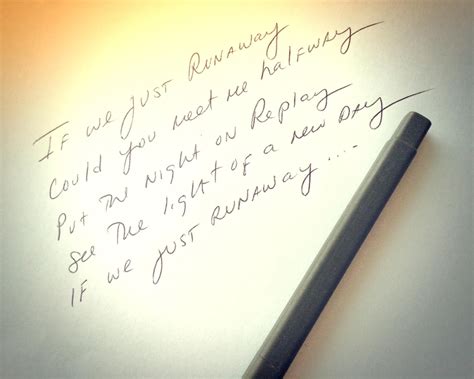 If we just Runaway
Could you meet me halfway
Put the night on Replay
See the light of a new Day
If we just Runaway ....